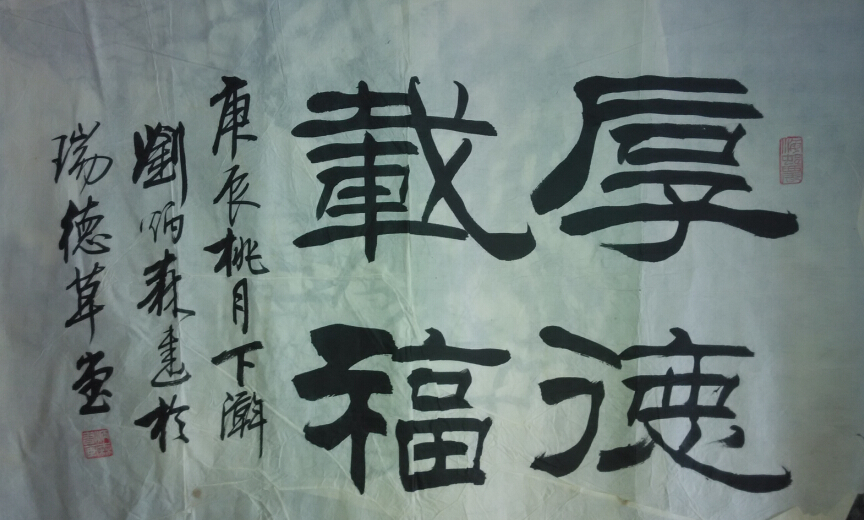 厚德
載福
庚辰桃月下澣
劉炳森書於
瑞德草堂